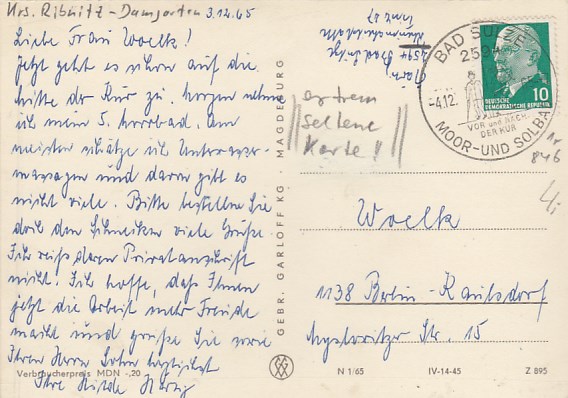 Krs. Ribnitz-Damgarten 3.12.65
Liebe Frau Woelk!
Jetzt geht es schon auf die
Mitte der Kur zu. Morgen nehme
ich mein 5. Moorbad. Am
meisten schätze ich Unterwasser-
massagen und davon gibt es
nicht viele. Bitte bestellen Sie
doch den Schmelers viele Grüße
Ich weiß deren Privatanschrift
nicht. Ich hoffe, daß Ihnen
jetzt die Arbeit mehr Freude
macht und grüße Sie sowie
Ihren Herrn Sohn herzlichst
Ihre
Verbraucherpreis MDN -,20
GEBR. GARLOFF KG · MAGDEBURG
2594 Bad Sülze
extrem
seltene
Karte!!
BAD SÜLZE
2594
-4.12.
VOR und NACH
DER KUR
MOOR- UND SOLBAD
DEUTSCHE
DEMOKRATISCHE REPUBLIK
10
846
Woelk
1138 Berlin-Kaulsdorf
Str. 15
N 1/65 IV-14-45 Z 895